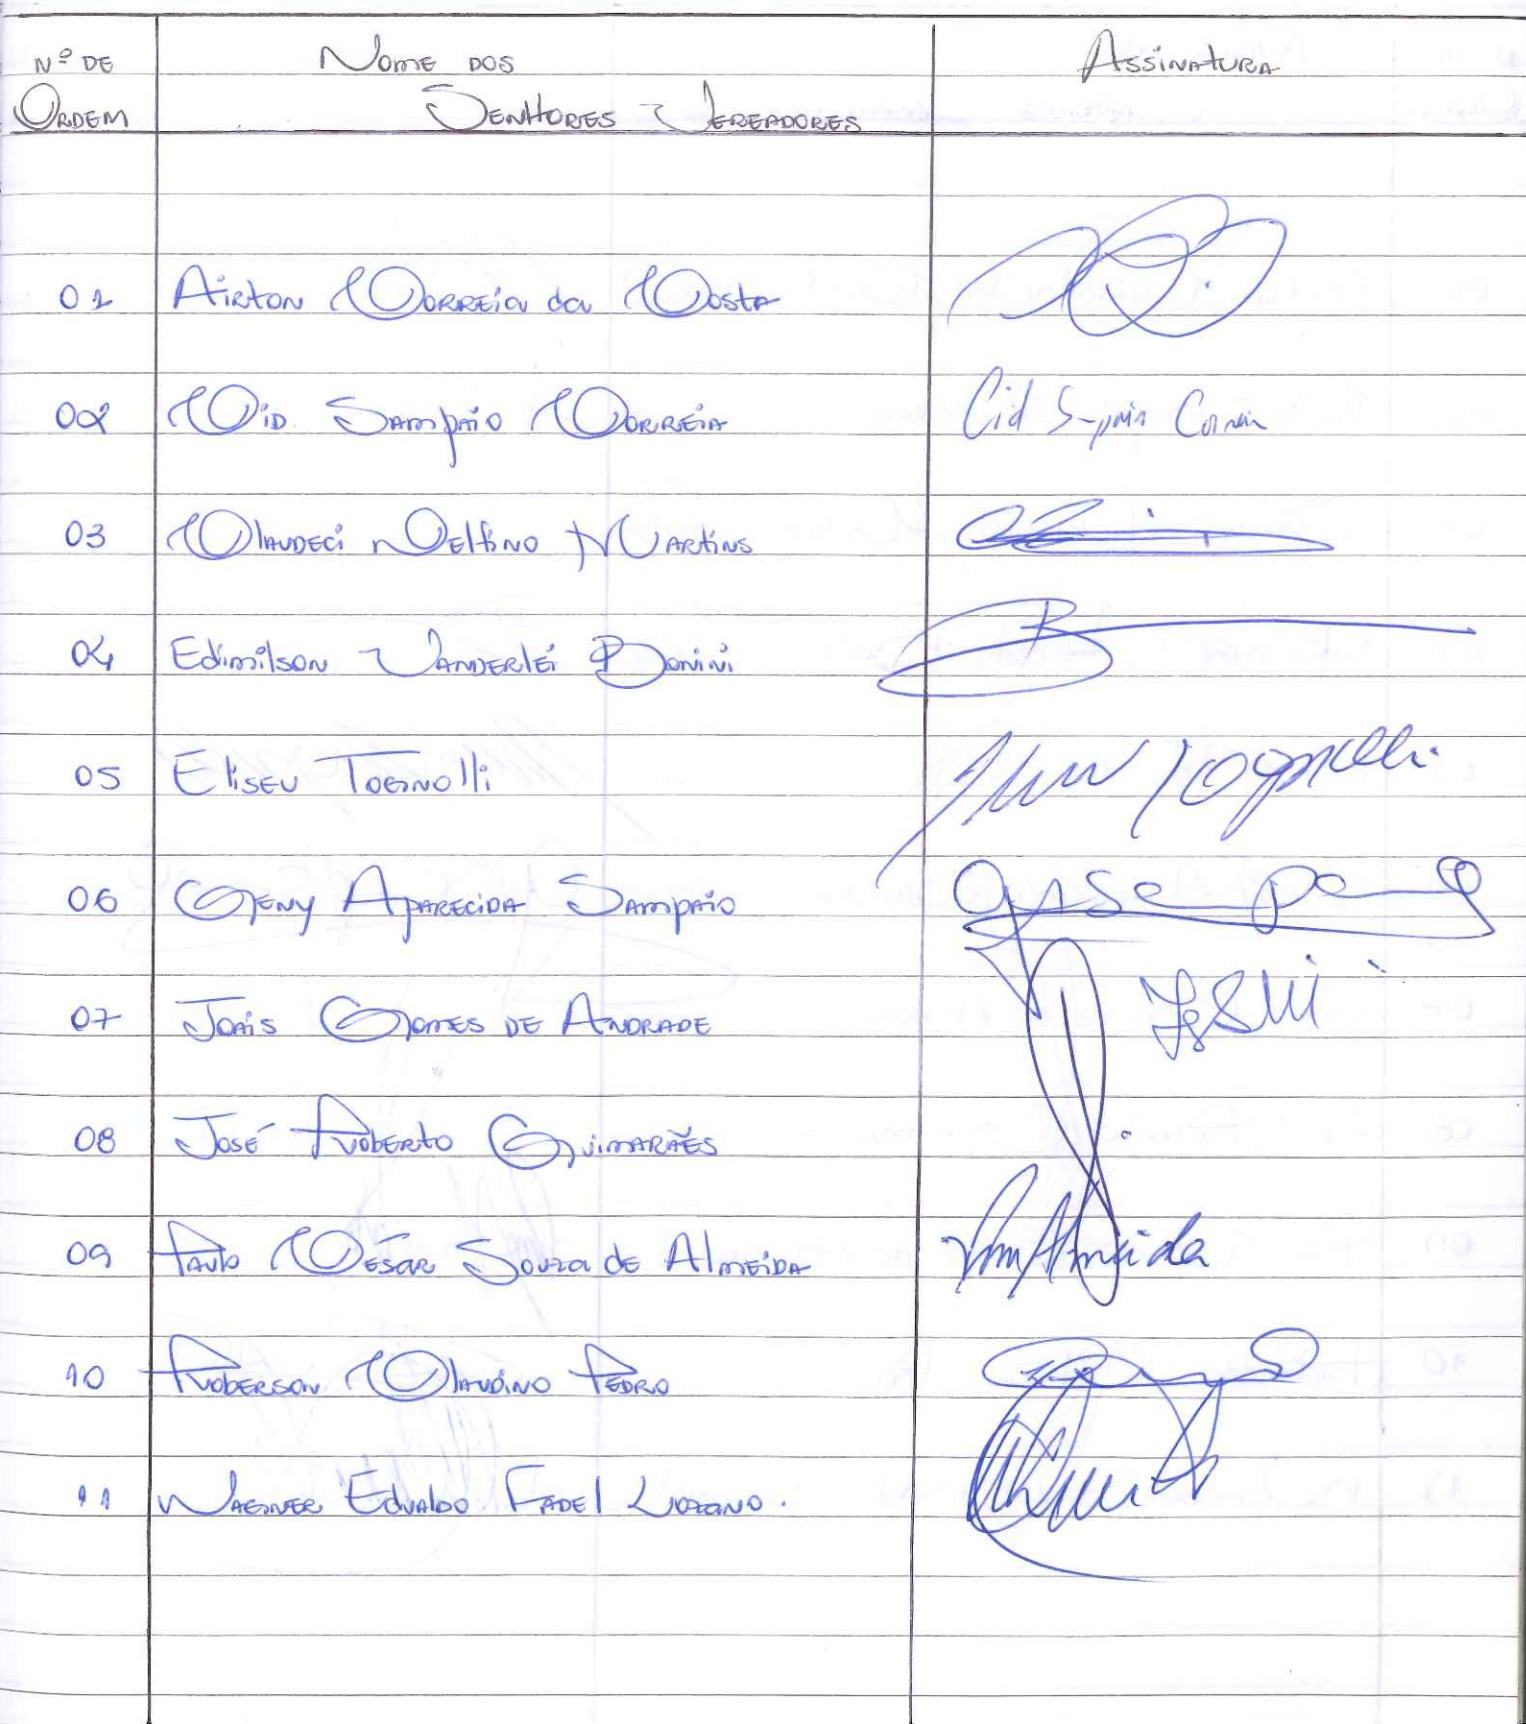 Nº DE Nome dos Assinatura
Ordem Senhores Vereadores
01 Airton Correia da Costa
02 Cid Sampaio Correia Cid Sampaio Correia
03 Claudeci Delfino Martins
04 Edimilson Vanderlei Bonini
05 Eliseu Tognolli Eliseu Tognolli
06 Geny Aparecida Sampaio
07 Joais Gomes de Andrade
08 José Roberto Guimarães
09 Paulo César Souza de Almeida Almeida
10 Roberson Claudino Pedro
11 Wagner Edvaldo Fadel Lozano.